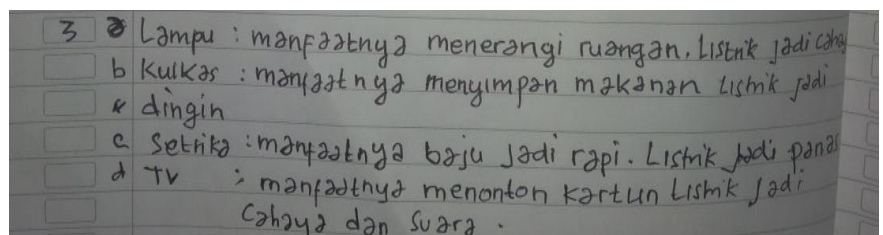 3 a Lampu : manfaatnya menerangi ruangan. Listrik jadi cahay
b Kulkas : manfaatnya menyimpan makanan Listrik jadi
dingin
c Setrika : manfaatnya baju jadi rapi. Listrik jadi panas
d TV : manfaatnya menonton kartun Listrik jadi
Cahaya dan suara.